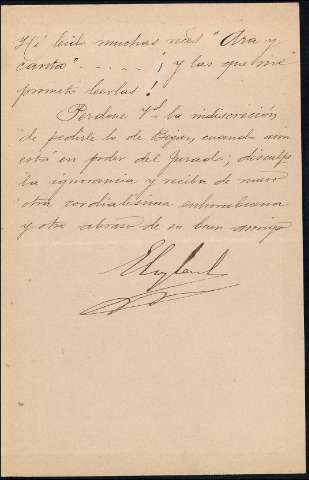 Hé leido muchas veces "Ara y
canta" . . . . . ¡ y las que me
prometo leerlas!
Perdone Vd. la indiscreción
de pedirle la de Bejar, cuando aun
está en poder del Jurado; disculpe
la ignorancia y reciba de nuevo
otra cordialísima enhorabuena
y otro abrazo de su buen amigo